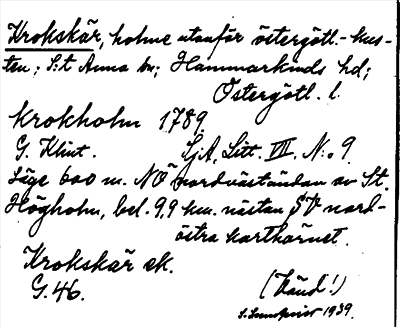 Krokskär, holme utanför östergötl.-kus-
ten; S:t Anna sn; Hammarkinds hd;
Östergötl. l.
Krokholm 1789
G. Klint. SjA, Litt. III. N:o 9
Läge 600 m. NO nordväständan av St.
Högholm, bel. 9,9 km. nästan SV nord-
östra karthörnet.
Krokskär ek.
G.46. (Vänd!)
S. Sundqvist 1939.